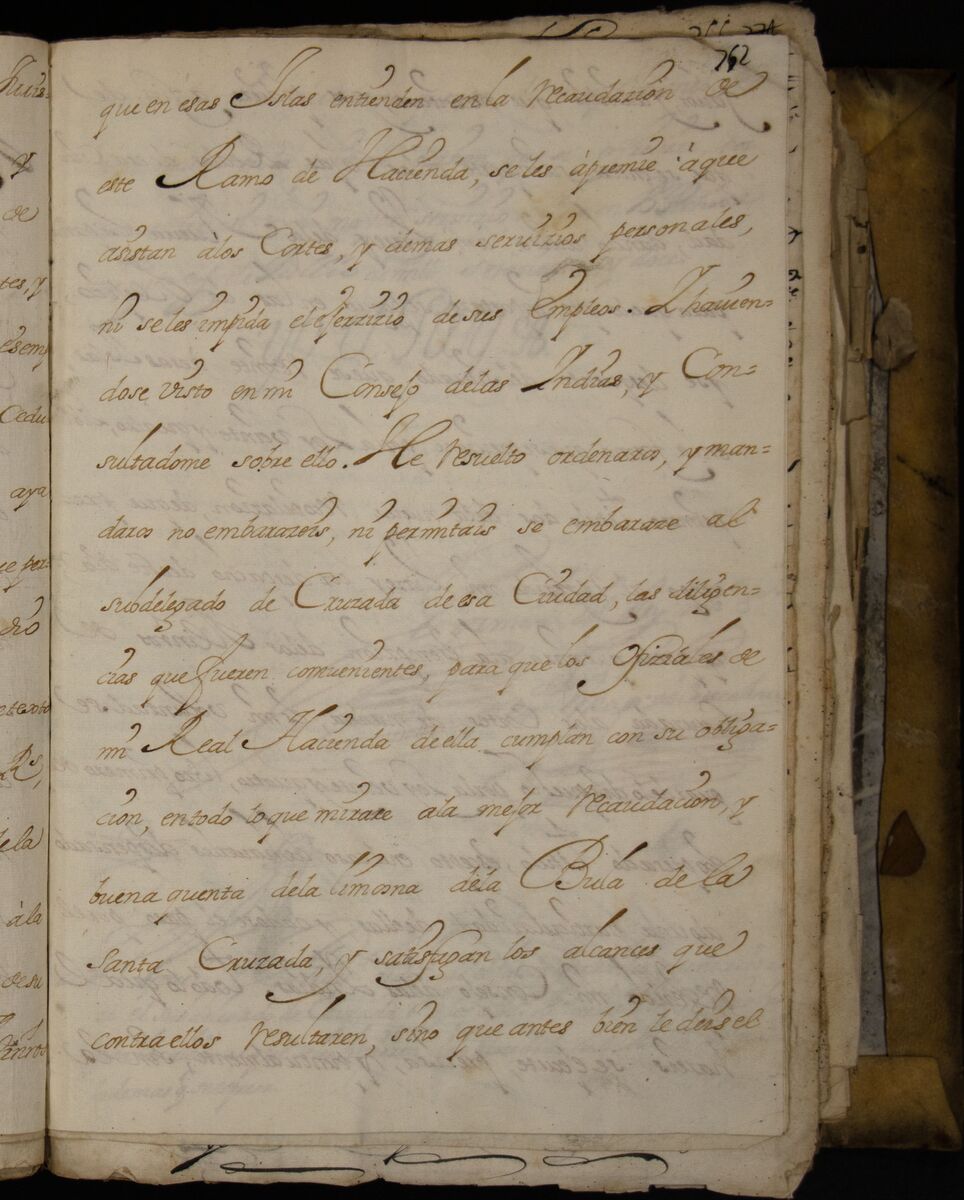 762
que en esas Islas entienden en la recaudazion de
este Ramo de Hacienda, seles ápremie áque
asistan álos Cortes, y demas servizios personales,
ni seles impida el eserzizio desus Empleos. Y havien=
dose visto en mi Consejo delas Indias, y Con=
sultadome sobre ello. He resuelto ordenaros, y man=
daros no embarazeis, ni permitais se embaraze al
subdelegado de Cruzada de esa Ciudad, las diligen=
cias que fueren convenientes, para que los Ofiziales de
mi Real Hacienda de ella cumplan con su obliga=
cion, entodo loque mirare ala mejor recaudacion, y
buena quenta dela limosna dela Bula de la
Santa Cruzada, y satisfagan los alcances que
contra ellos resultaren, sino que antes bien le deis el
y
de
tes, y
Cedu
aya
dela
àla
desu